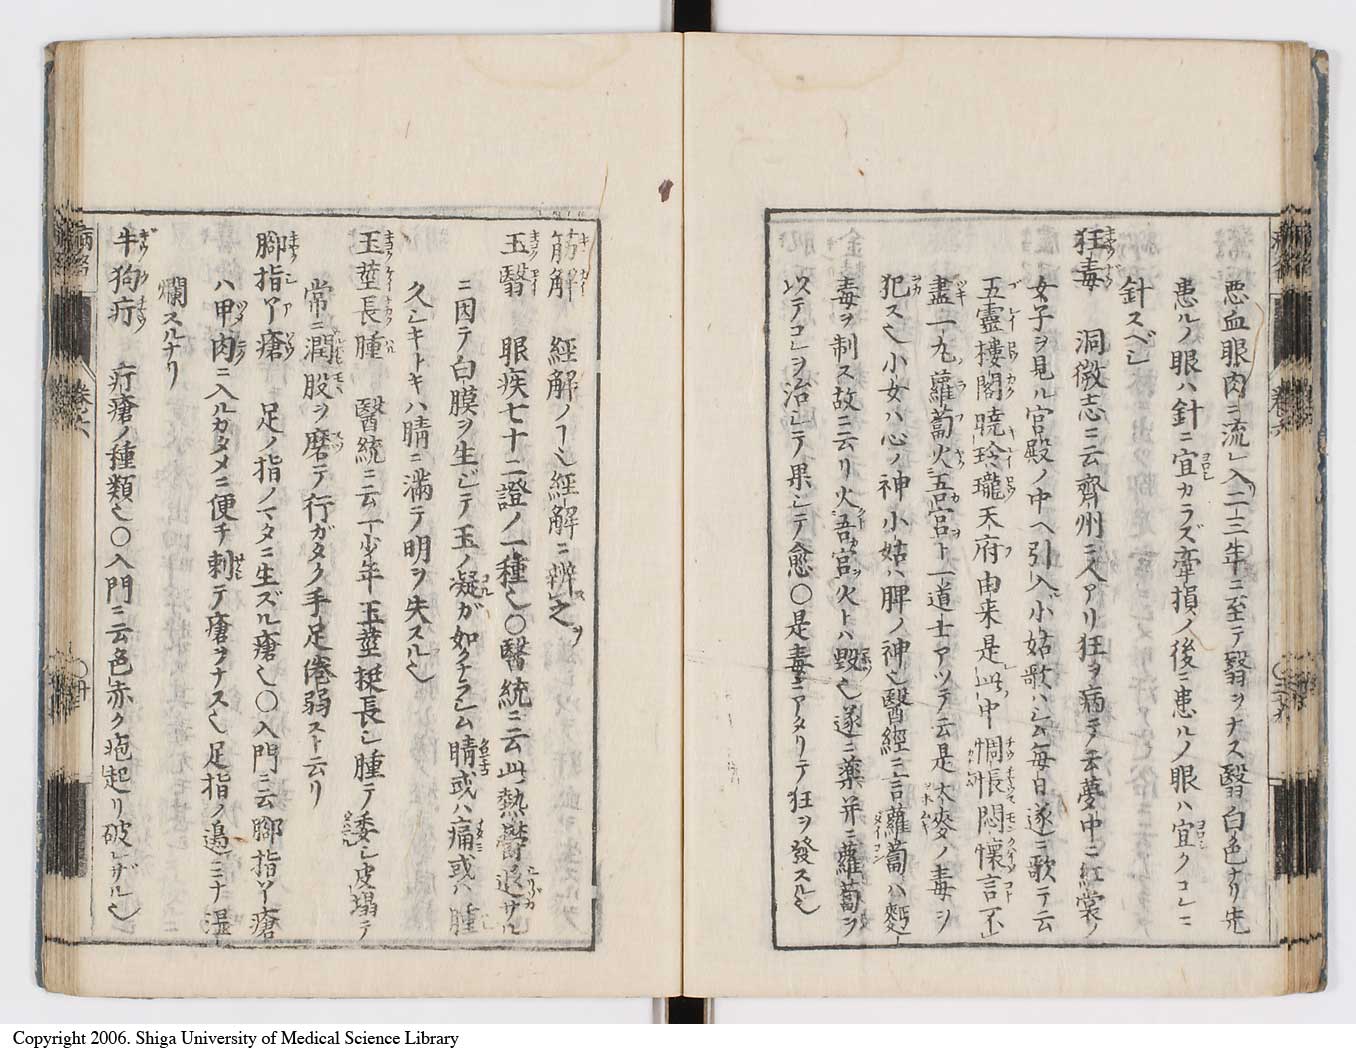 悪血眼肉ニ流レ入二三年ニ至テ翳ヲナス翳白色ナリ先
患ルノ眼ハ針ニ宜カラズ牽損ノ後ニ患ルノ眼ハ宜クコレニ
針スベシ
狂毒 洞微志ニ云齊州ニ人アリ狂ヲ病テ云夢中ニ紅裳ノ
女子ヲ見ル宮殿ノ中ヘ引入小姑歌ハシム毎日遂ニ歌テ云
五靈樓閣曉玲瓏天府由来是此中惆悵悶懐言不
盡一丸蘿蔔火吾宮ト一道士アツテ云是大麥ノ毒ヲ
犯ス也小女ハ心ノ神小姑ハ脾ノ神也醫經ニ言蘿蔔ハ麪
毒ヲ制ス故ニ云リ火吾宮火トハ毀也遂ニ薬并ニ蘿蔔ヲ
以テコレヲ治シテ果シテ愈〇是毒ニアタリテ狂ヲ發スル也
筋解 經解ノコト也經解ニ辨之
玉翳 眼疾七十二證ノ一種也〇醫統ニ云此熱欝退ザル
ニ因テ白膜ヲ生ジテ玉ノ凝ガ如クナラシム睛或ハ痛或ハ腫
久シキトキハ睛ニ満テ明ヲ失スル也
玉莖長腫 醫統ニ云一少年玉莖挺長シ腫テ委シ皮塌テ
常ニ潤股ヲ磨テ行ガタク手足倦弱スト云リ
腳指丫瘡 足ノ指ノマタニ生ズル瘡也〇入門ニ云腳指丫瘡
ハ甲肉ニ入ルガタメニ便チ刺テ瘡ヲナス也足指ノ邉ミナ湿
爛スルナリ
牛狗疔 疔瘡ノ種類也〇入門ニ云色赤ク疱起リ破レザル也
病名
巻之六
Copyright 2006. Shiga University of Medical Science Library